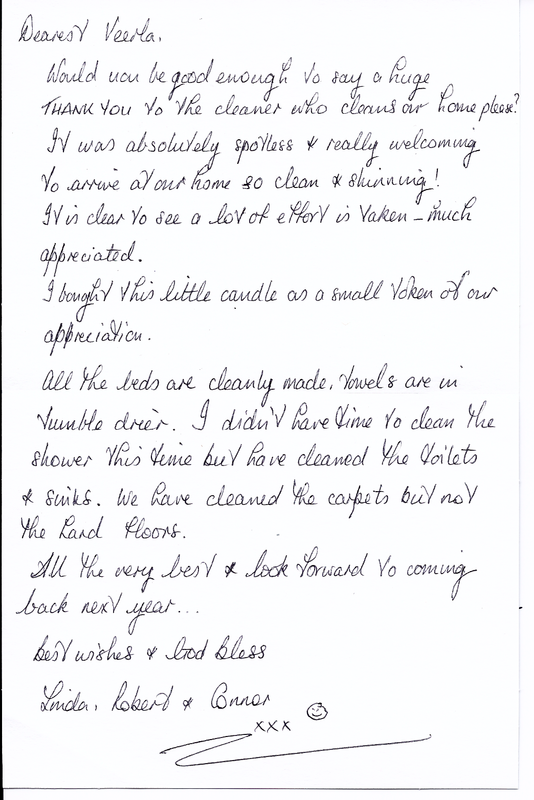 Dearest Veerla,
Would you be good enough to say a huge
THANK YOU to the cleaner who cleans our home please?
It was absolutely spotless & really welcoming
to arrive at our home so clean & shinning!
It is clear to see a lot of effort is taken – much
appreciated.
I bought this little candle as a small token of our
appreciation.
All the beds are cleanly made, towels are in
tumble drier. I didn't have time to clean the
shower this time but have cleaned the toilets
& sinks. We have cleaned the carpets but not
the hard floors.
All the very best & look forward to coming
back next year...
best wishes & God bless
Linda, Robert & Connor
xxx